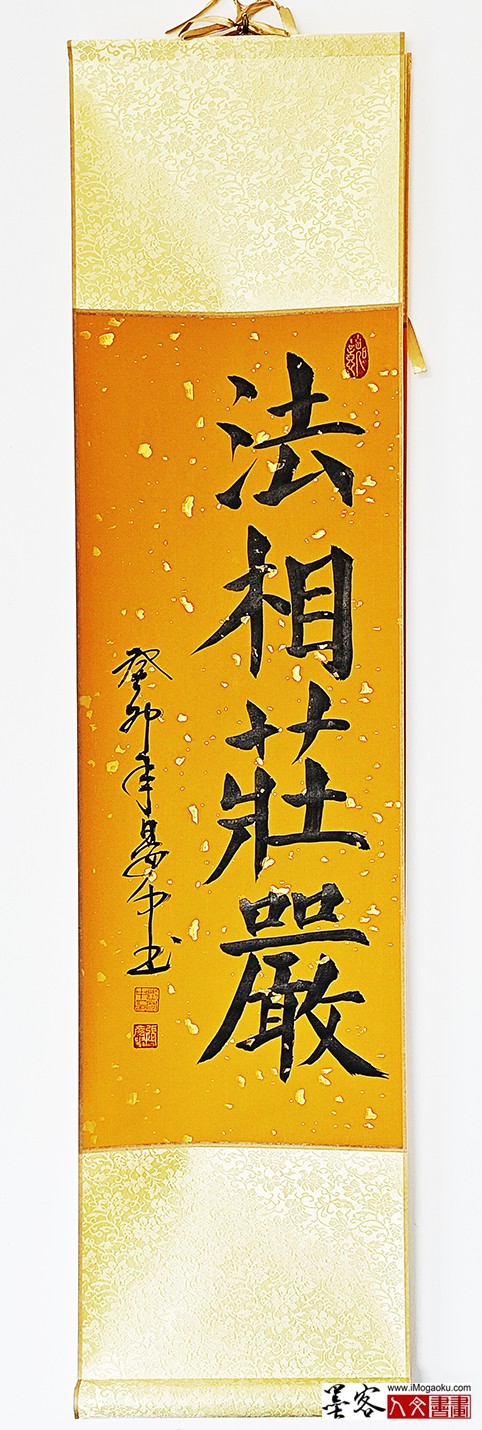 法相莊嚴
癸卯年晏中书
墨客
www.iMogaoku.com
人文書畫